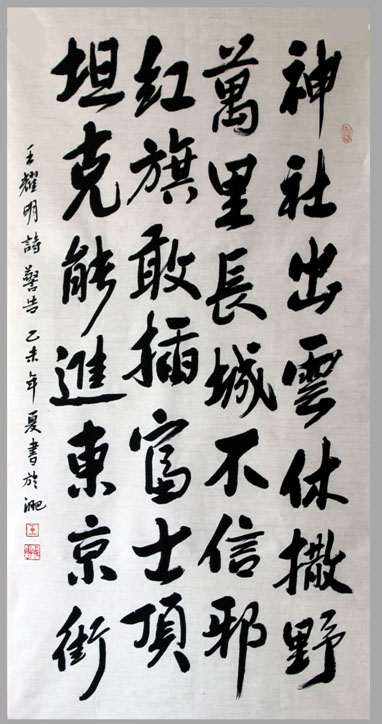 神社出雲休撒野
萬里長城不信邪
紅旗敢插富士頂
坦克能進東京街
王耀明詩警告乙未年夏書於淝